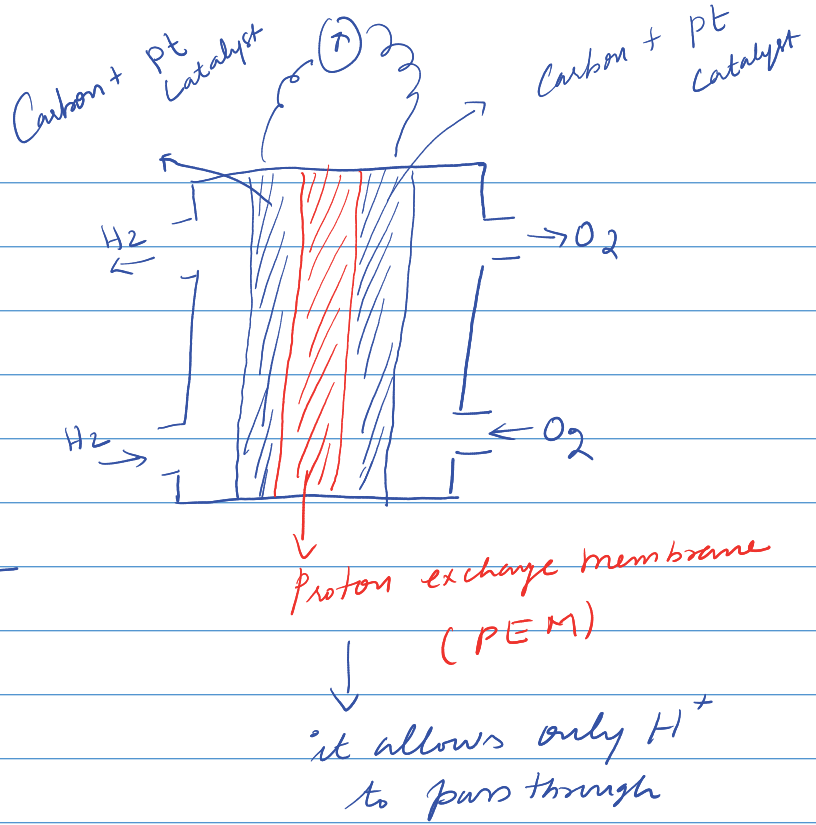 Carbon + Pt
Catalyst
Carbon + Pt
Catalyst
H2
→ O2
←
H2
→
← O2
Proton exchange membrane
(PEM)
it allows only H+
to pass through